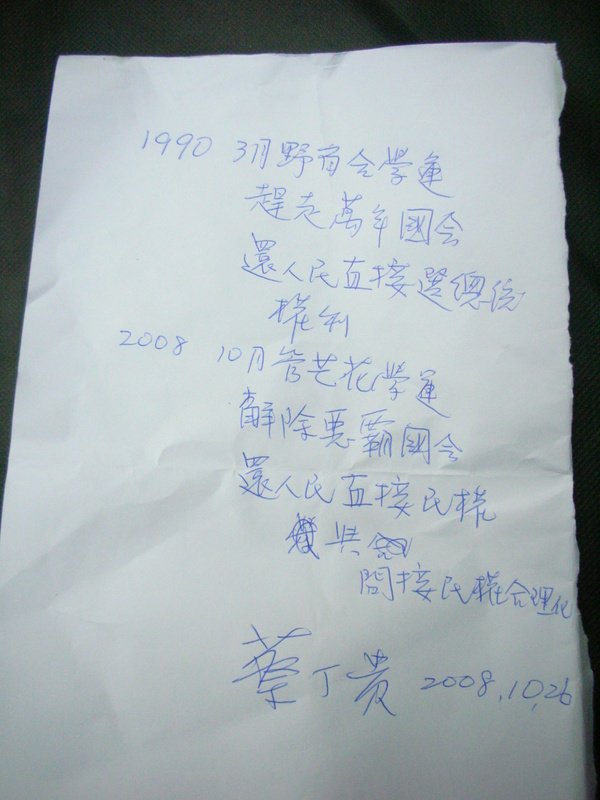 1990 3月野百合學運
趕走萬年國会
還人民直接選總統
權利
2008 10月管芒花學運
解除惡霸國会
還人民直接民權
與
間接民權合理化
蔡丁貴 2008.10.26